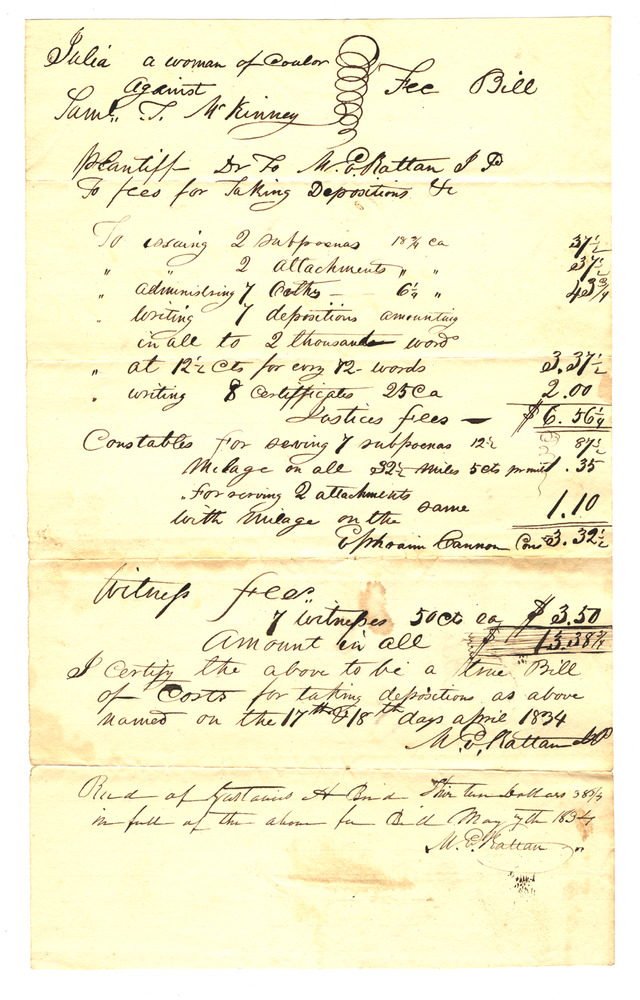 Julia a woman of Coulor
Against
Saml. T. McKinney
Fee Bill
Plantiff Dr To M. E. Rattan J P
To fees for Taking Depositions &c
To issuing 2 subpoenas 18¾ ca 37½
" " 2 attachments " " 37½
" administring 7 Oaths — 6¼ " 43¾
" writing 7 depositions amounting
in all to 2 thousand words
" at 12½ cts for evry 72 words 3.37½
" writing 8 Certificates 25 Ca 2.00
Justices fees — $6.56¼
Constables for serving 7 subpoenas 12½ 87½
Milage on all 32½ miles 5cts pr mile 1.35
" for serving 2 attachments
with milage on the same 1.10
Ephraim Cannon Cons 3.32½
Witness fees
7 witnesses 50 cts ea $3.50
Amount in all $13.38¾
I certify the above to be a true Bill
of Costs for taking depositions as above
named on the 17th & 18th days april 1834
M. E. Rattan JP
Recd of Gustavus A Bird Thirteen Dollars 38¾
in full of the above fee Bill May 7th 1834
M. E. Rattan